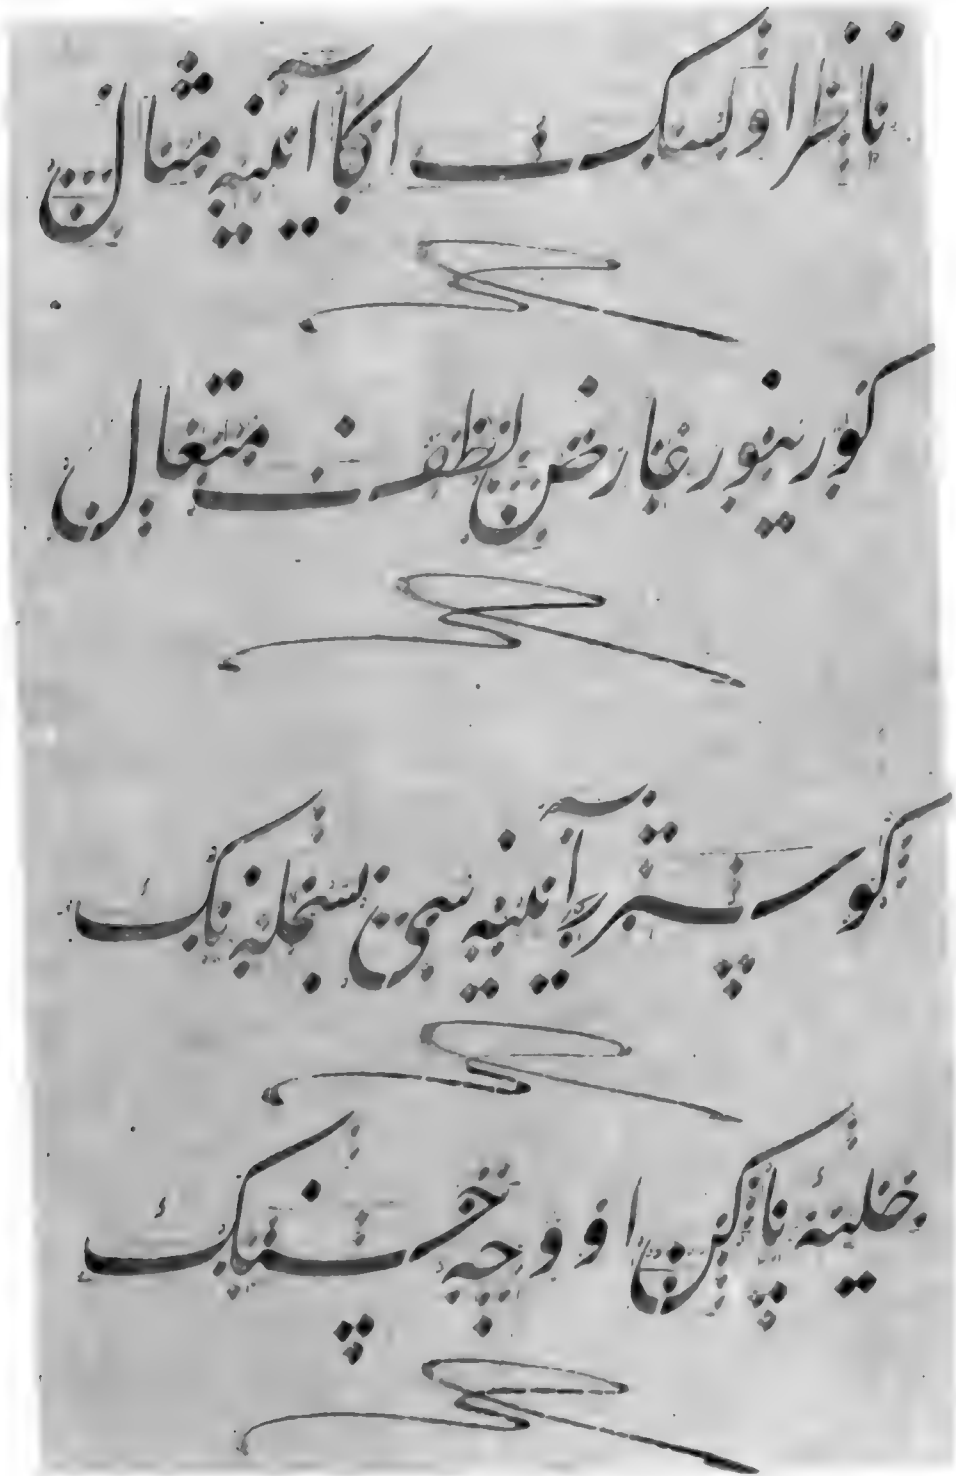 ناظر اولسك اكا آيينه مثال
كورينور عارض لطف متعال
كوسترر آيينه سى بسمله نك
حليهٔ پاكن او وجه حسنك